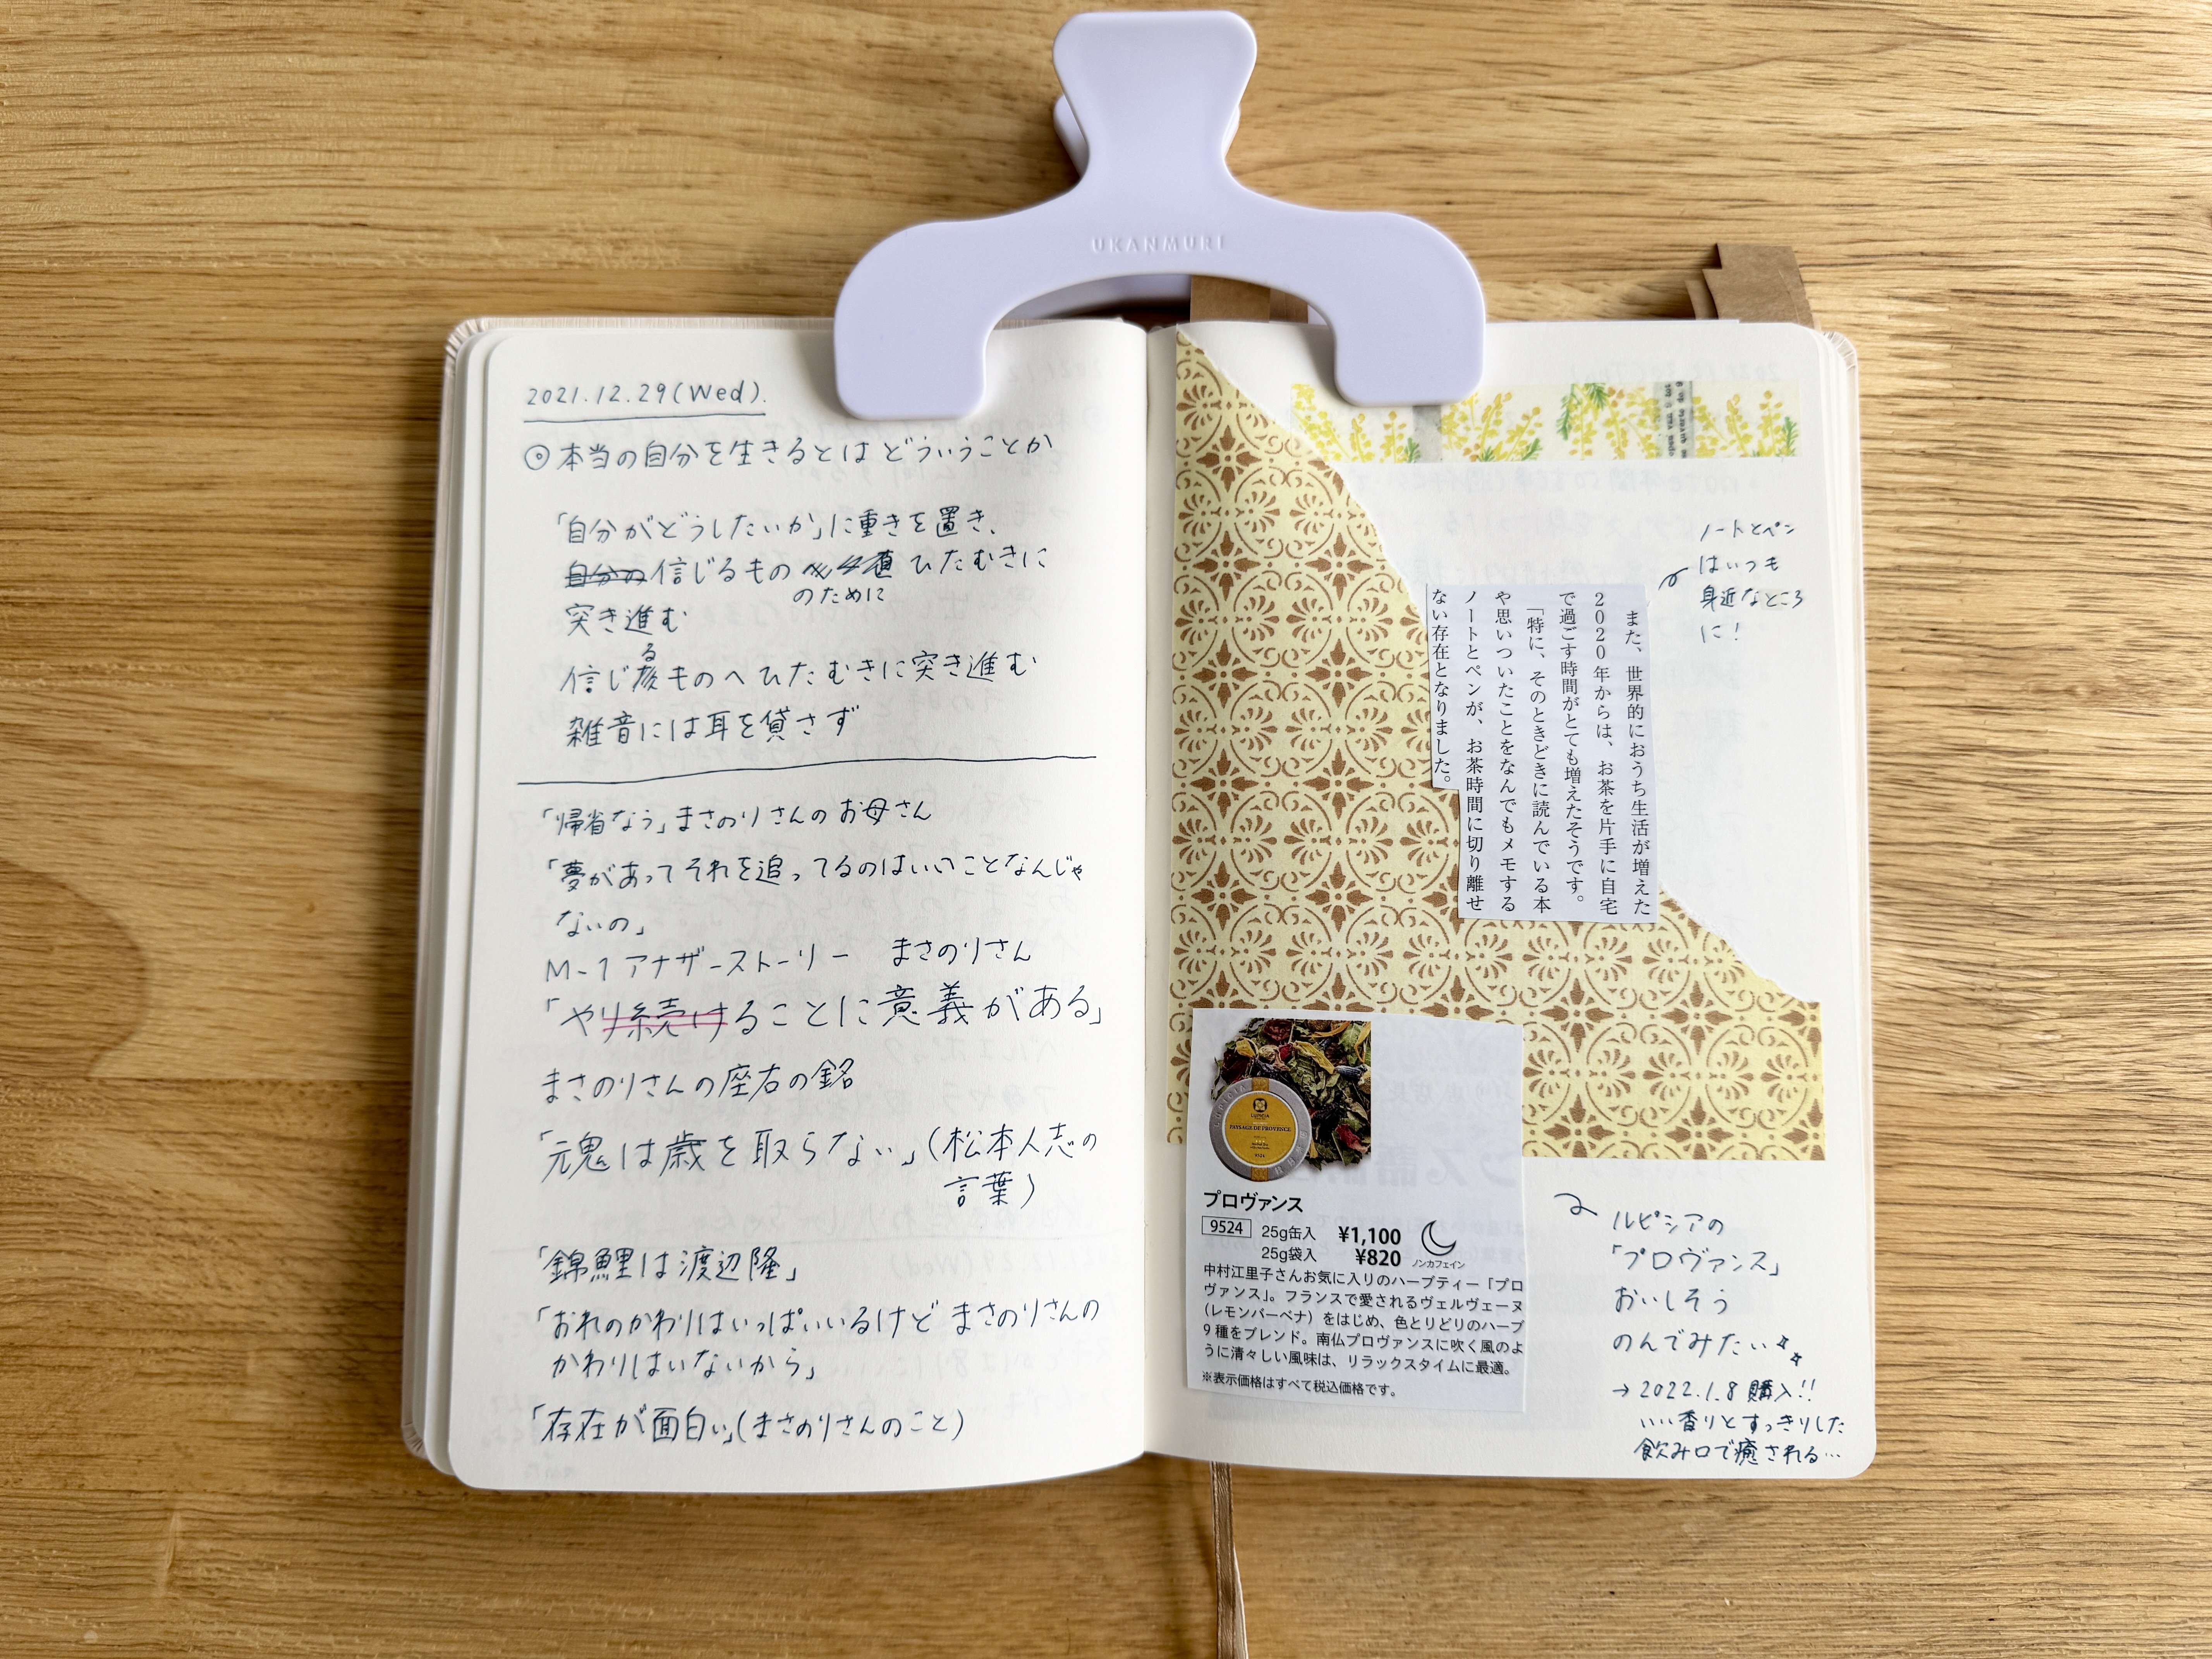 UKANMURI
2021.12.29(Wed).
⦿本当の自分を生きるとは どういうことか
「自分がどうしたいか」に重きを置き、
自分の信じるもの ひたむきに
のために
突き進む
る
信じものへ ひたむきに突き進む
雑音には耳を貸さず
「帰省なう」まさのりさんのお母さん
「夢があってそれを追ってるのはいいことなんじゃ
ないの」
M-1 アナザーストーリー まさのりさん
「やり続けることに意義がある」
まさのりさんの座右の銘
「魂は歳を取らない」(松本人志の
言葉)
「錦鯉は渡辺隆」
「おれのかわりはいっぱいいるけど まさのりさんの
かわりはいないから」
「存在が面白い」(まさのりさんのこと)
ノートとペン
はいつも
身近なところ
に!
また、世界的におうち生活が増えた
2020年からは、お茶を片手に自宅
で過ごす時間がとても増えたそうです。
「特に、そのときどきに読んでいる本
や思いついたことをなんでもメモする
ノートとペンが、お茶時間に切り離せ
ない存在となりました。
LUPICIA
PAYSAGE DE PROVENCE
9524
プロヴァンス
9524 25g缶入 ¥1,100
25g袋入 ¥820
ノンカフェイン
中村江里子さんお気に入りのハーブティー「プロ
ヴァンス」。フランスで愛されるヴェルヴェーヌ
(レモンバーベナ)をはじめ、色とりどりのハーブ
9種をブレンド。南仏プロヴァンスに吹く風のよ
うに清々しい風味は、リラックスタイムに最適。
※表示価格はすべて税込価格です。
ルピシアの
「プロヴァンス」
おいしそう
のんでみたい
→2022.1.8 購入!!
いい香りとすっきりした
飲み口で癒される…